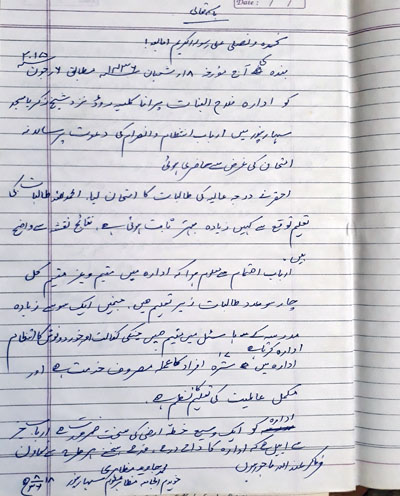 باسمہ تعالیٰ
Date: / /
نحمدہ ونصلی علی رسولہ الکریم امابعد!
بندہ آج مورخہ ۱۸ شعبان ۱۴۳۶ھ مطابق ۶ جون ۲۰۱۵
کو ادارہ فلاح البنات پرانا کلسیہ روڈ نزد شیخ زکریا مسجد
سہارنپور میں ارباب انتظام وانصرام کی دعوت پر سالانہ
امتحان کی غرض سے حاضری ہوئی
احقر نے درجہ عالیہ کی طالبات کا امتحان لیا۔ الحمدللہ طالبات کی
تعلیم توقع سے کہیں زیادہ بہتر ثابت ہوئی ہے۔ نتائج نقشہ سے واضح
ہیں۔
ارباب اہتمام سے معلوم ہوا کہ ادارہ میں مقیم وغیر مقیم کل
چار سو عدد طالبات زیر تعلیم ہیں۔ جنمیں ایک سو سے زیادہ
مدرسہ کے ہاسٹل میں مقیم ہیں جنکی کفالت اور خورد ونوش کا انتظام
ادارہ کرتا ہے
ادارہ میں ۱۷ سترہ افراد کا عملہ مصروف خدمت ہے اور
مکمل عالمیت کی تعلیم کا نظم ہے۔
ادارہ کو ایک وسیع خطۂ ارضی کی سخت ضرورت ہے ارباب خیر
سے اپیل ہے کہ ادارہ کا ہر طرح سے تعاون
فرماکر عنداللہ ماجور ہوں
مظاہری
خادم مظاہر علوم سہارنپور